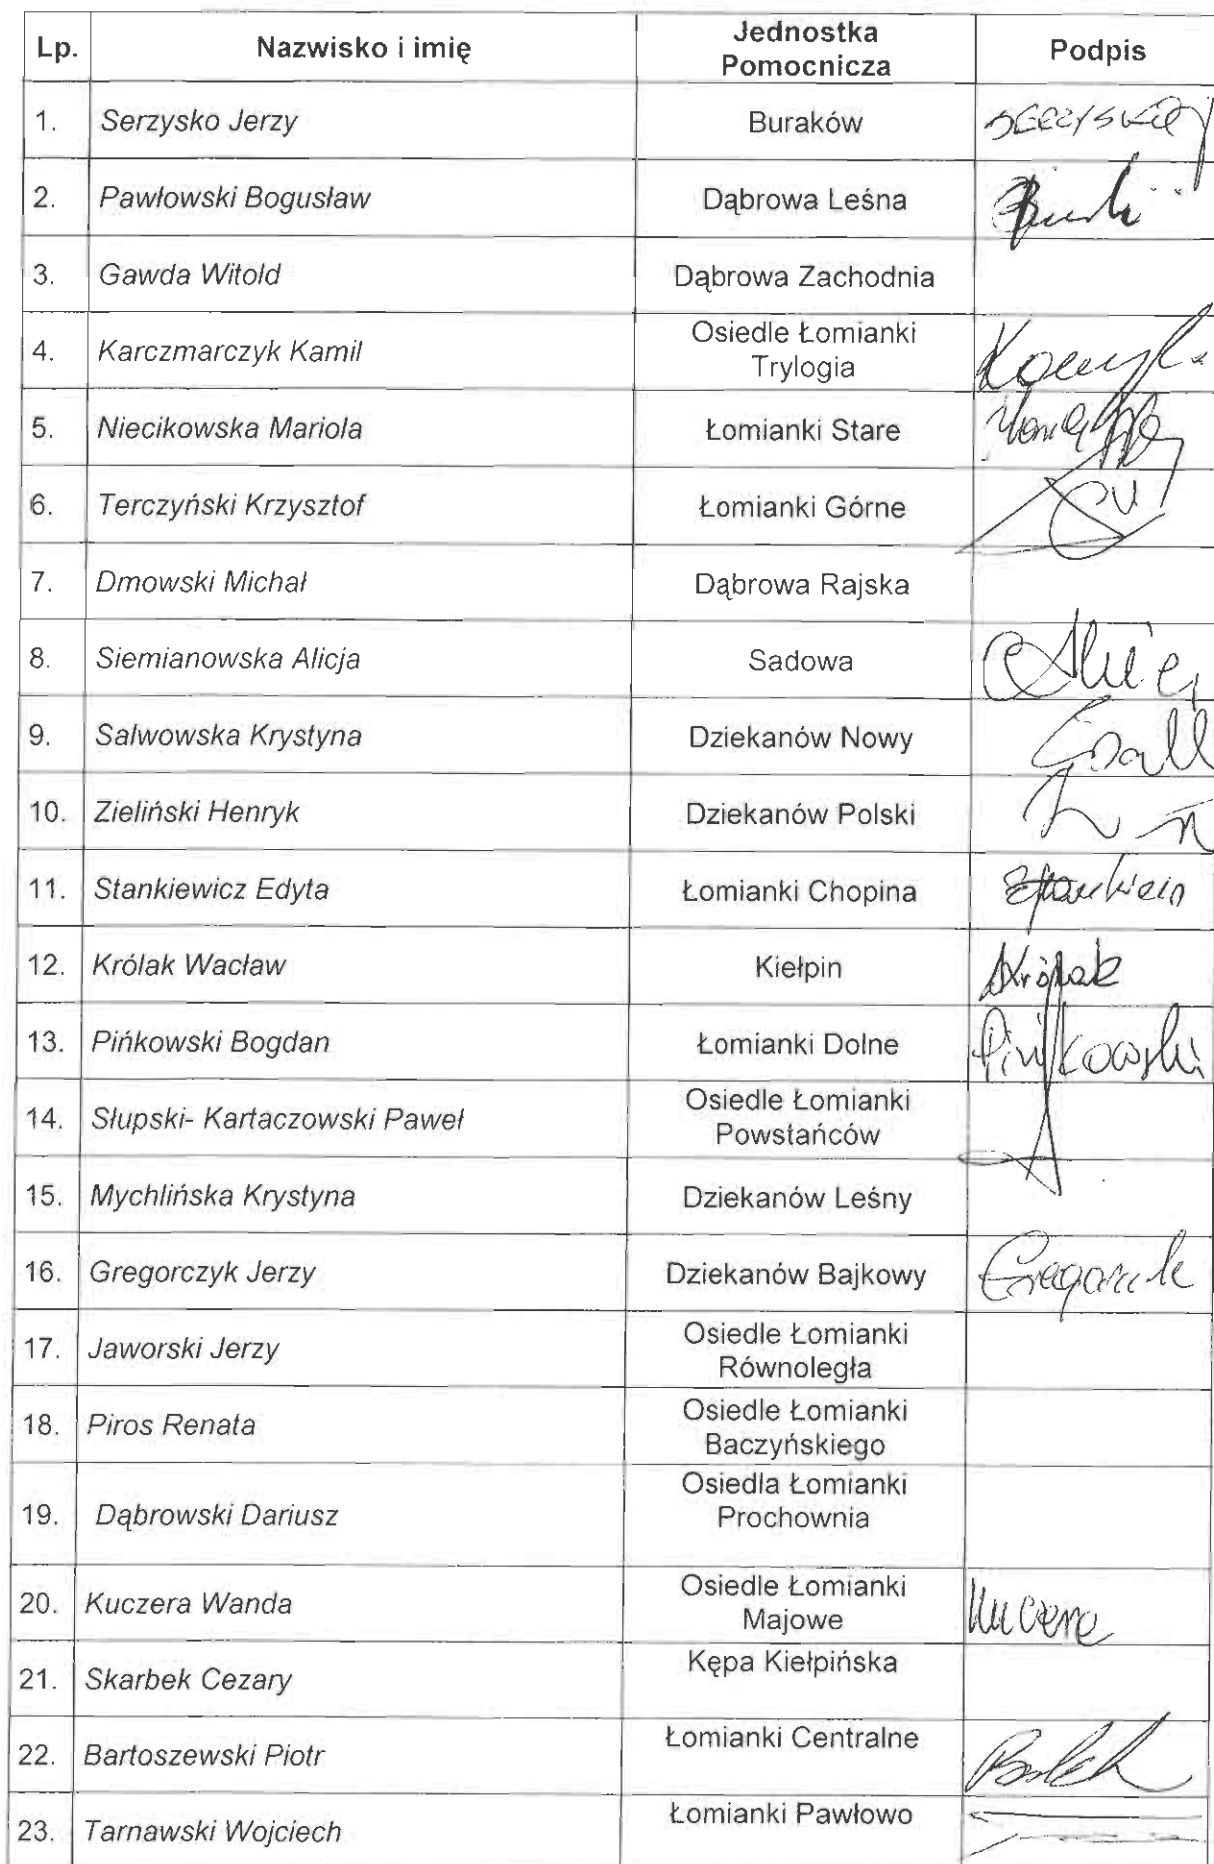 Lp. Nazwisko i imię Jednostka Pomocnicza Podpis
1. Serzysko Jerzy Buraków
2. Pawłowski Bogusław Dąbrowa Leśna
3. Gawda Witold Dąbrowa Zachodnia
4. Karczmarczyk Kamil Osiedle Łomianki Trylogia
5. Niecikowska Mariola Łomianki Stare
6. Terczyński Krzysztof Łomianki Górne
7. Dmowski Michał Dąbrowa Rajska
8. Siemianowska Alicja Sadowa
9. Salwowska Krystyna Dziekanów Nowy
10. Zieliński Henryk Dziekanów Polski
11. Stankiewicz Edyta Łomianki Chopina
12. Królak Wacław Kiełpin Królak
13. Pińkowski Bogdan Łomianki Dolne Pińkowski
14. Słupski- Kartaczowski Paweł Osiedle Łomianki Powstańców
15. Mychlińska Krystyna Dziekanów Leśny
16. Gregorczyk Jerzy Dziekanów Bajkowy
17. Jaworski Jerzy Osiedle Łomianki Równoległa
18. Piros Renata Osiedle Łomianki Baczyńskiego
19. Dąbrowski Dariusz Osiedla Łomianki Prochownia
20. Kuczera Wanda Osiedle Łomianki Majowe
21. Skarbek Cezary Kępa Kiełpińska
22. Bartoszewski Piotr Łomianki Centralne
23. Tarnawski Wojciech Łomianki Pawłowo